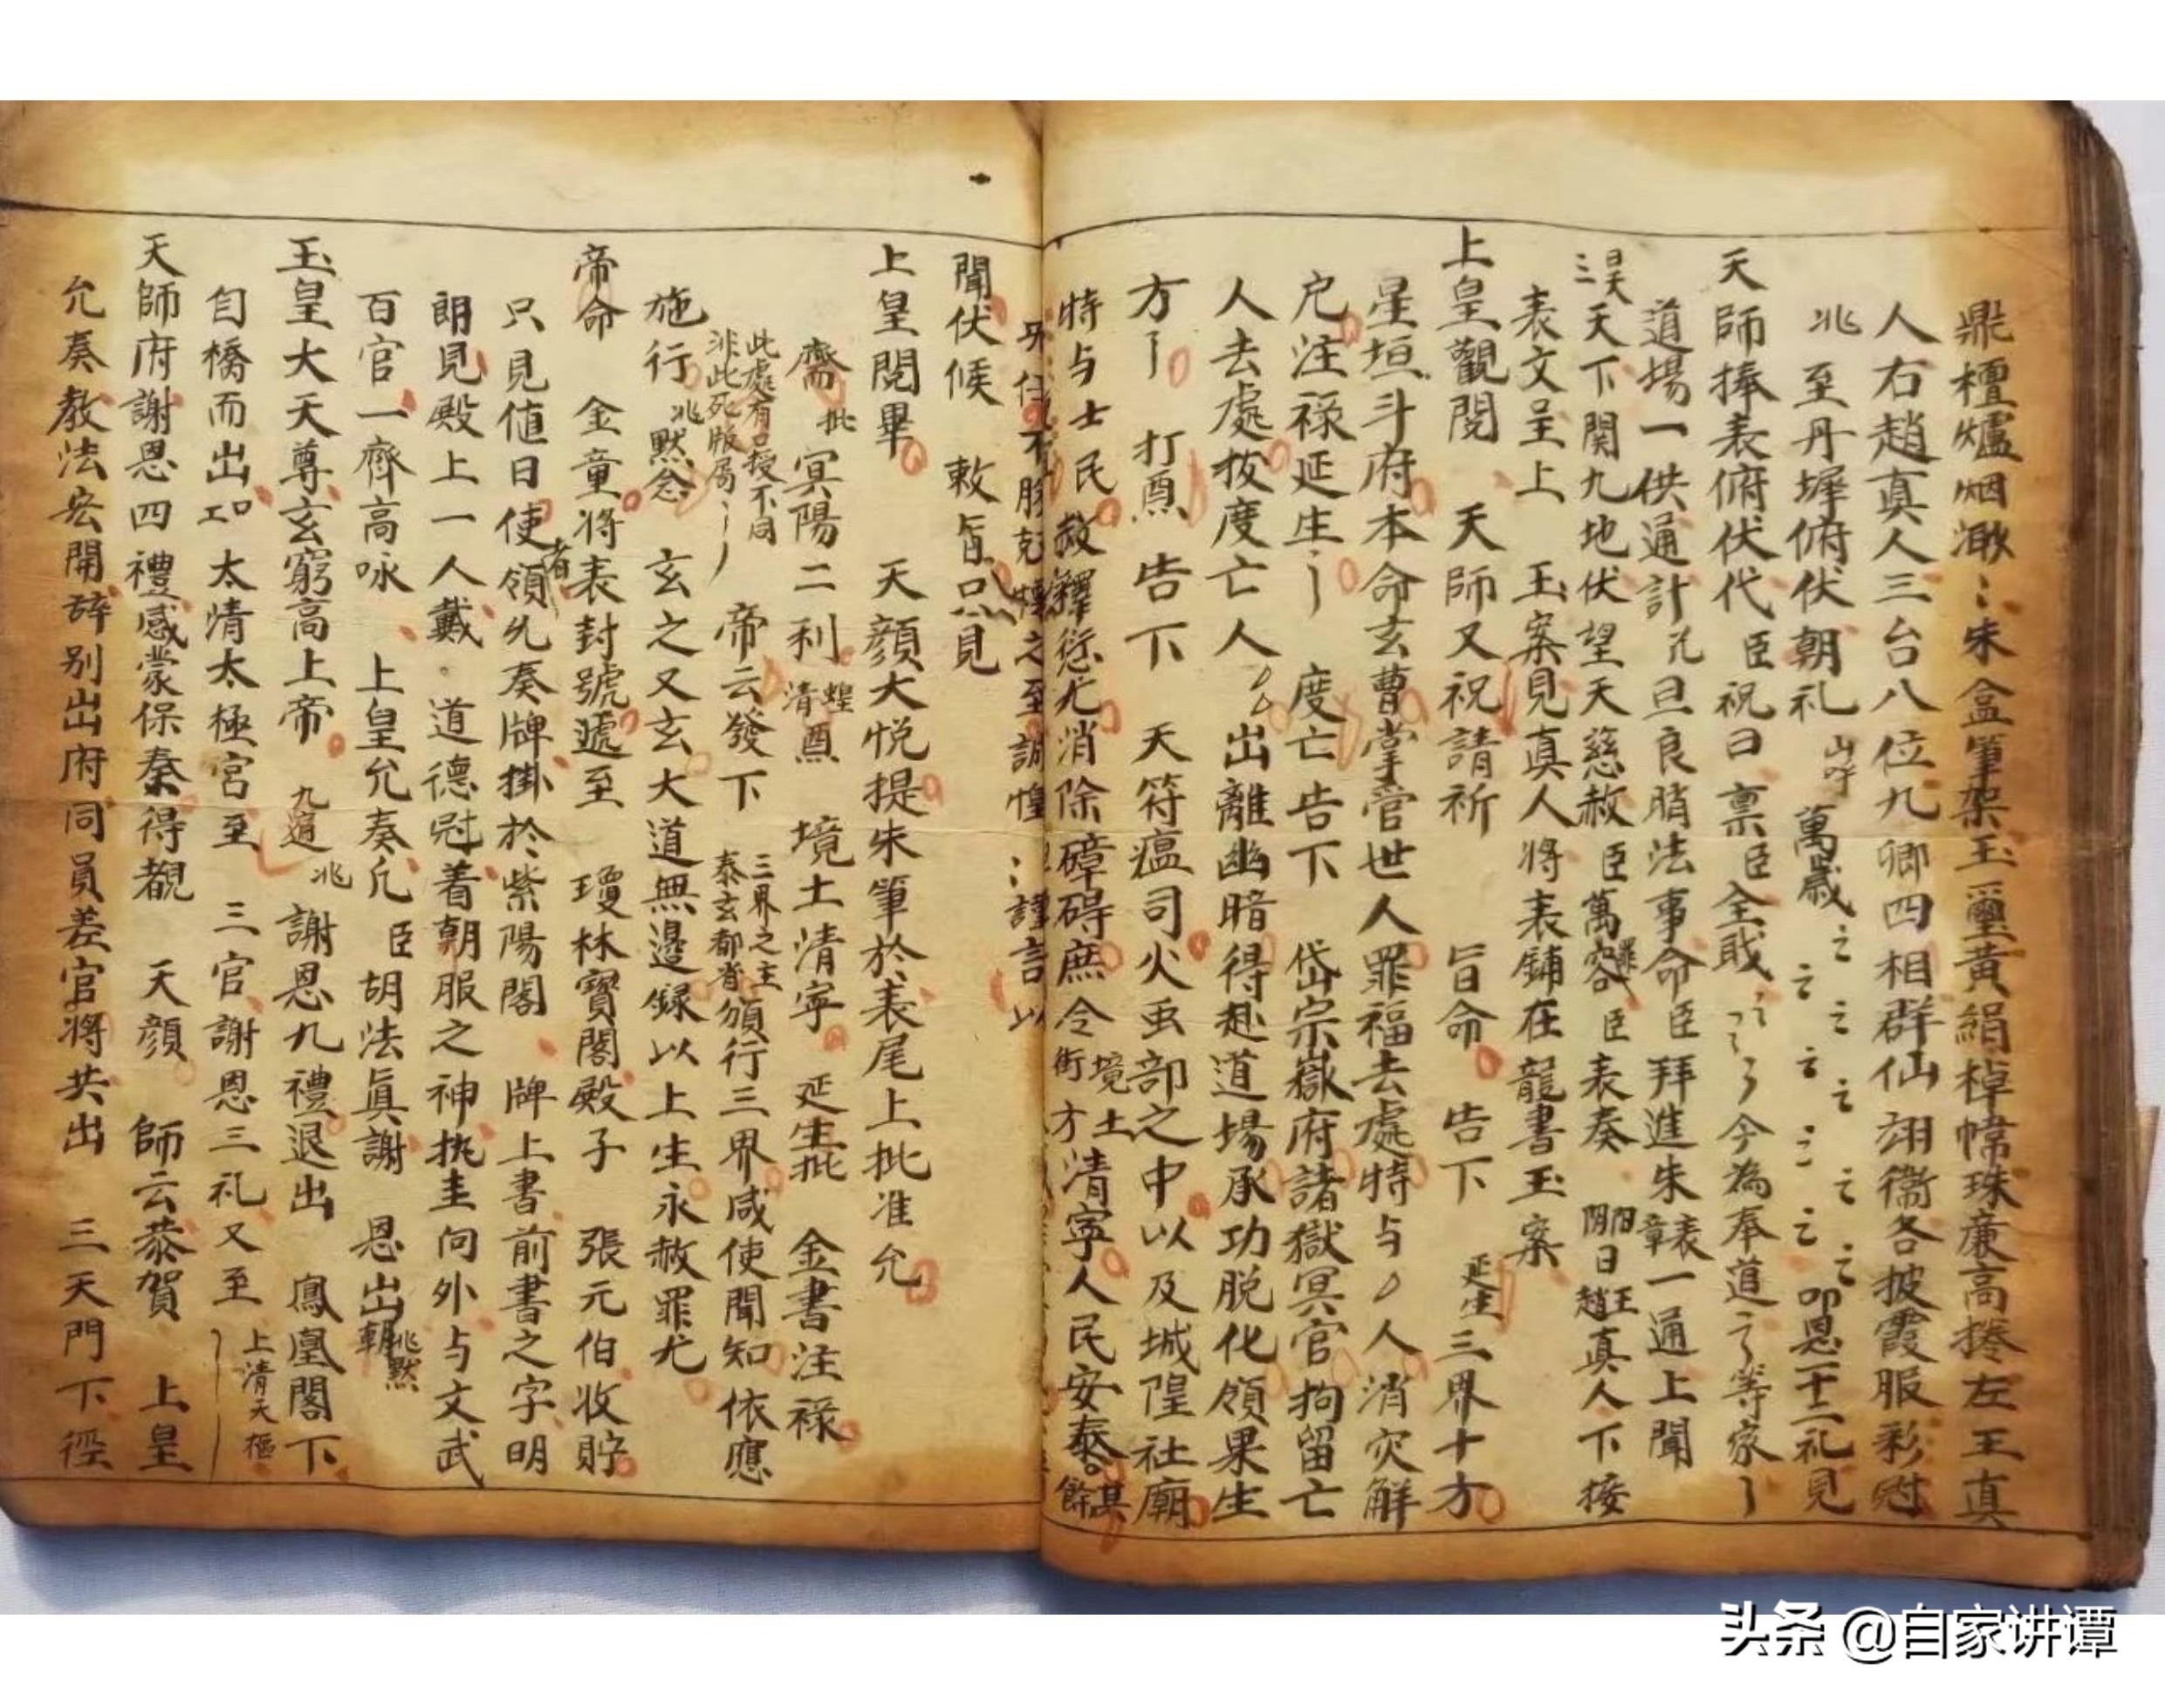 鼎檀爐烟濊〻朱盒筆架玉璽黃絹棹幃珠廉高捲左王真
人右趙真人三台八位九卿四相群仙翊衞各披霞服彩冠
兆至丹墀俯伏朝礼山呼萬歲 叩恩二十二礼見
天師捧表俯伏代臣祝曰禀臣全戝 今為奉道 等家
道場一供通計 旦良踃法事命臣拜進朱表章一通上聞
三昊天下関九地伏望天慈赦臣萬罪容臣表奏 陽陰日王趙真人下接
表文呈上 玉案見真人將表鋪在龍書玉案
上皇觀閱 天師又祝請祈 旨命 告下 延生三界十方
星垣斗府本命玄曹掌官世人罪福去處特与 人消灾解
厄注祿延生 度亡告下 岱宗嶽府諸獄冥官拘留亡
人去處拔度亡人 出離幽暗得赴道場承功脱化領果生
方 打醮 告下 天符瘟司火虫部之中以及城隍社廟
特与士民赦釋愆尤消除磹碍庶令境土街方清寧人民安泰其餘
不勝 之至誠惶 謹言以
聞伏候 敕旨只見
上皇閱畢 天顔大悦提朱筆於表尾上批准允
齋批 冥陽二利 蝗醮清 境土清寧 延生批 金書注祿
此處有口授不同
非此死版局
帝云發下 三界之主泰玄都省頒行三界咸使聞知依應
施行 兆默念 玄之又玄大道無邊錄以上生永赦罪尤
帝命 金童將表封號遞至 瓊林寶閣殿子 張元伯收貯
只見值日使者領允奏牌掛於紫陽閣 牌上書前書之字明
朗見殿上一人戴 道德冠着朝服之神执圭向外与文武
百官一齊高咏 上皇允奏 臣胡法真謝 恩出朝兆默
玉皇大天尊玄窮高上帝 九遍 兆謝恩九禮退出 鳳凰閣下
自橋而出 太清太極宮至 三官謝恩三礼又至 上清天樞
天師府謝恩四禮感蒙保奏得覩 天顔 師云恭賀 上皇
允奏教法宏開辞别出府同員差官將共出 三天門下徑
头条 @自家讲谭